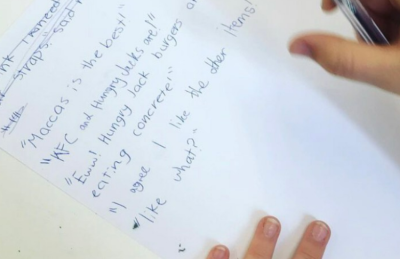 straps"
"Maccas is the best!"
"KFC and Hungry Jacks are!"
"Eww! Hungry Jack burgers are
eating concrete"
"I agree I like the other items!
"like what?"